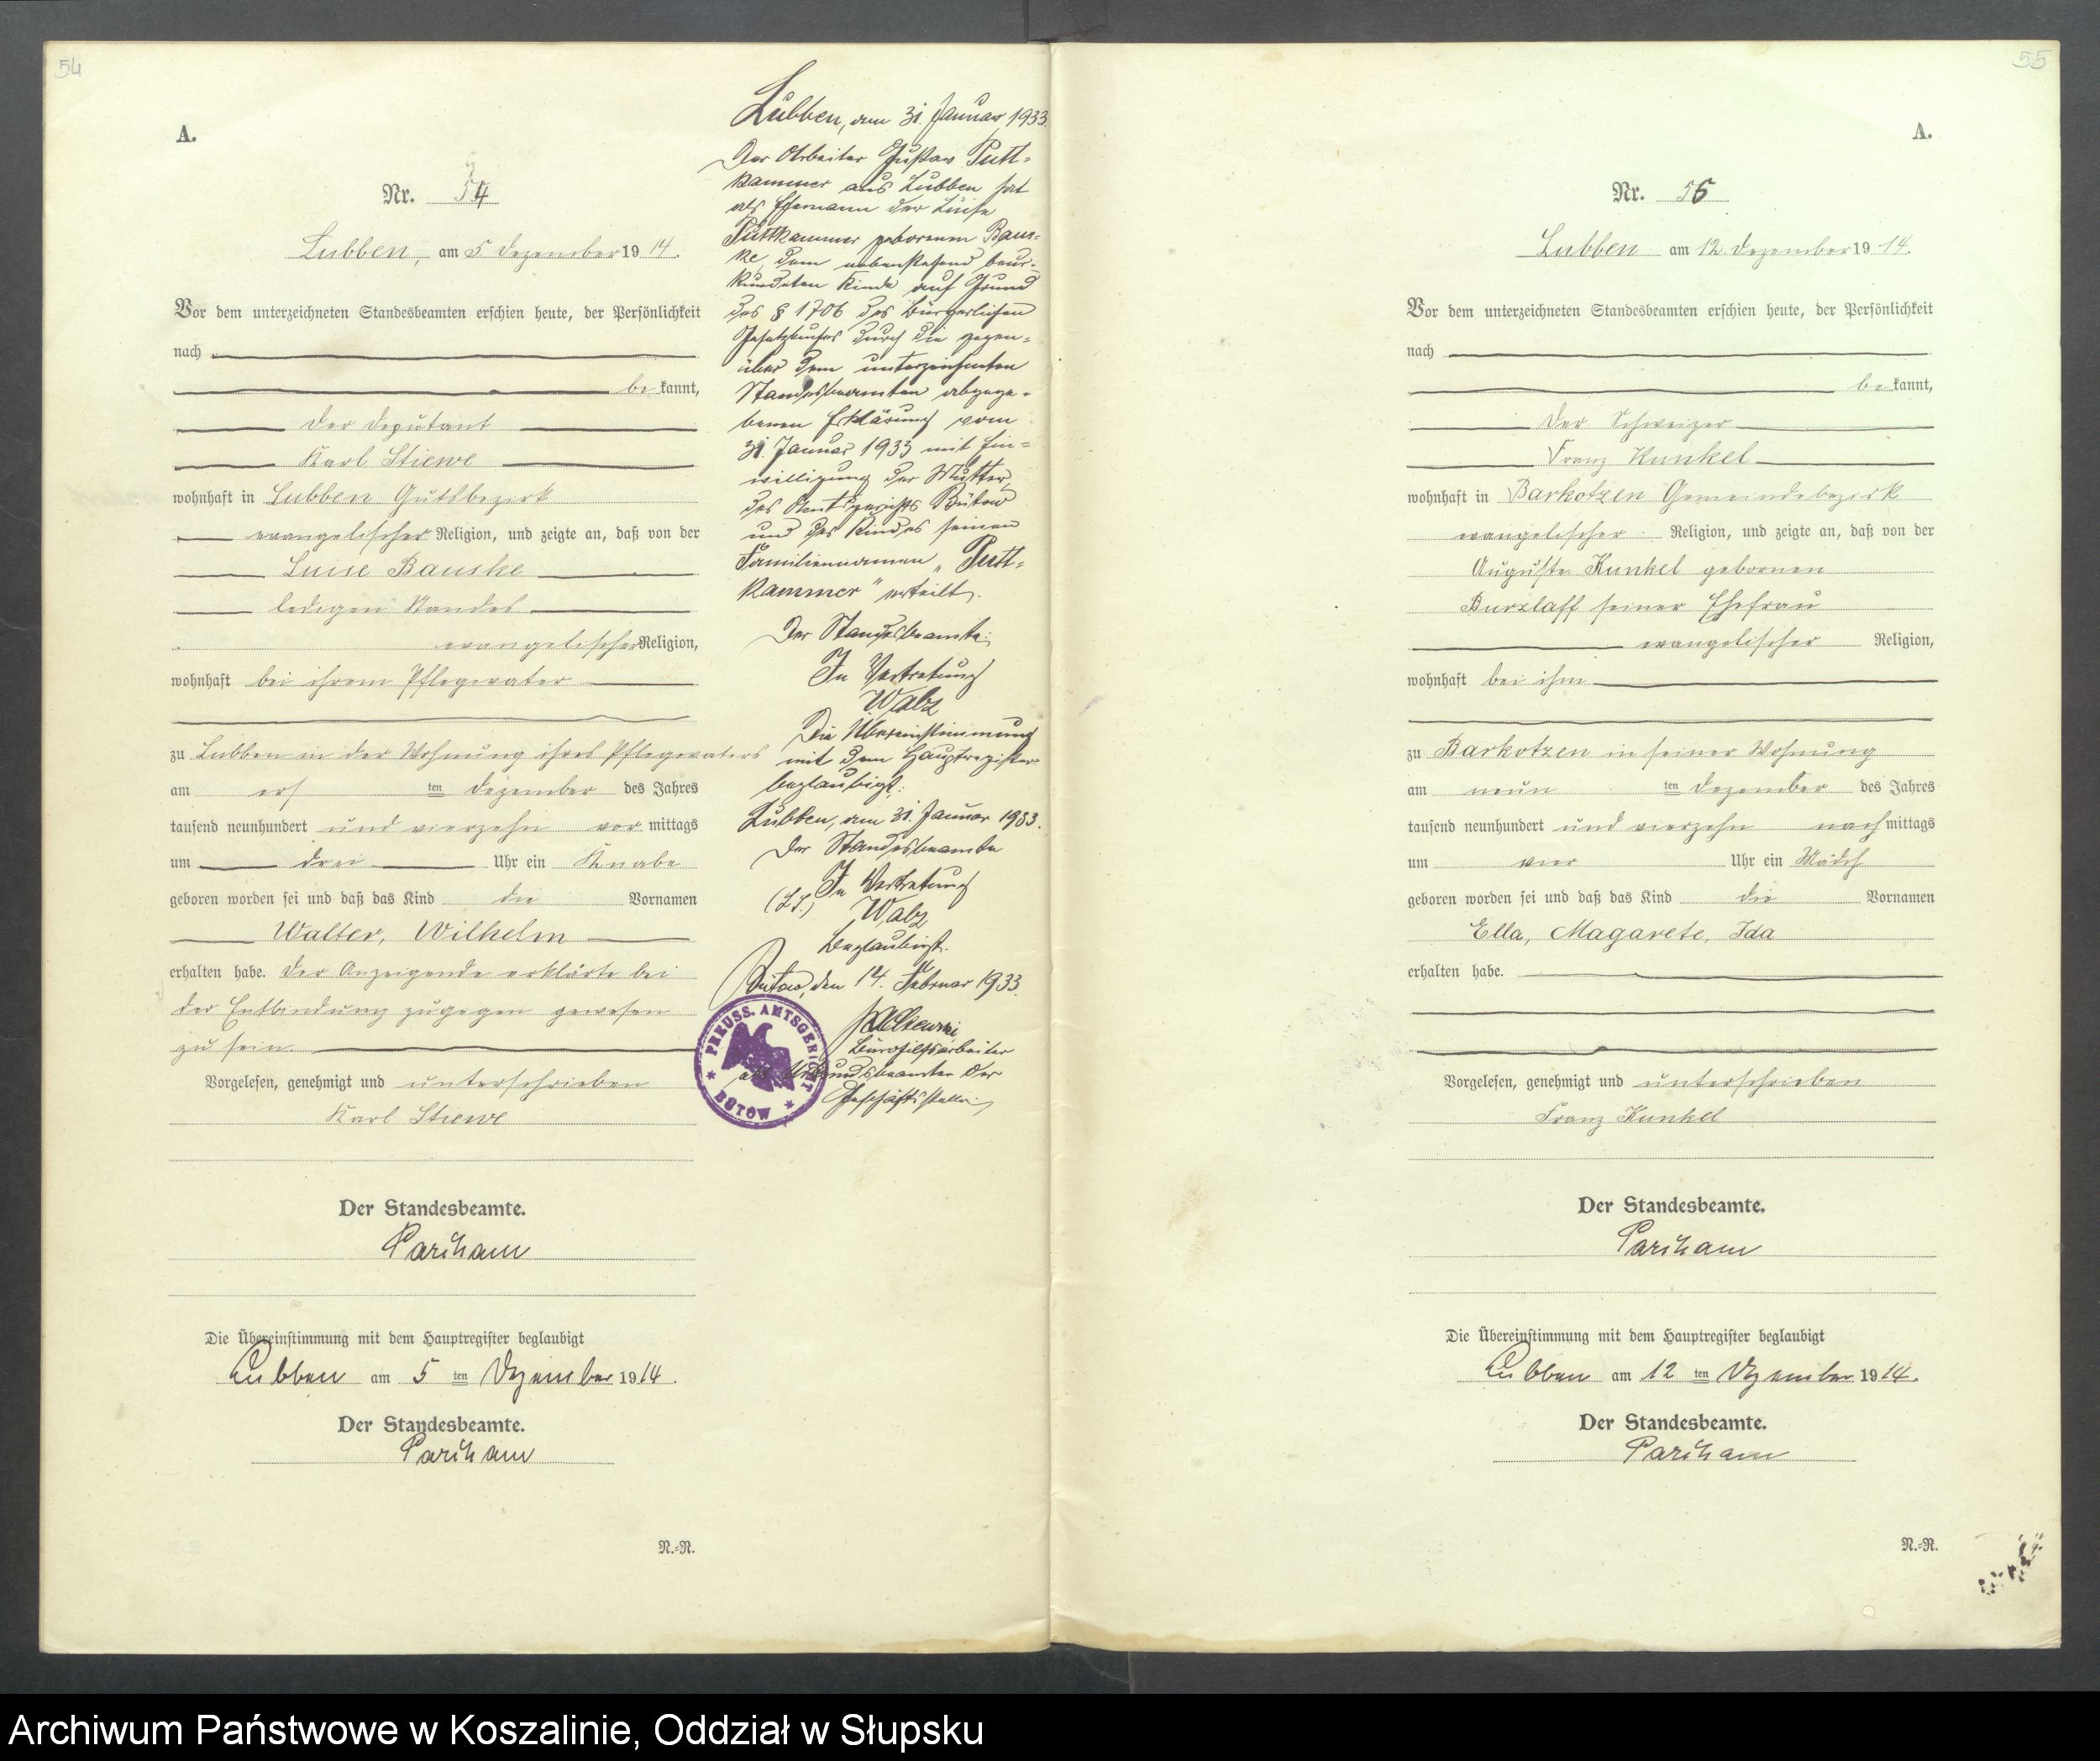 54
A.
Nr. 54
Lubben, am 5 Dezember 1914.
Vor dem unterzeichneten Standesbeamten erschien heute, der Persönlichkeit
nach
bekannt,
der Deputant
Karl Stiewe
wohnhaft in Lubben Gutsbezirk
evangelischer Religion, und zeigte an, daß von der
Luise Bauske
ledigen Standes
evangelischer Religion,
wohnhaft bei ihrem Pflegevater
zu Lubben in der Wohnung ihres Pflegevaters
am ersten Dezember des Jahres
tausend neunhundert und vierzehn vormittags
um drei Uhr ein Knabe
geboren worden sei und daß das Kind die Vornamen
Walter, Wilhelm
erhalten habe. Der Anzeigende erklärte bei
der Entbindung zugegen gewesen
zu sein.
Vorgelesen, genehmigt und unterschrieben
Karl Stiewe
Der Standesbeamte.
Die Übereinstimmung mit dem Hauptregister beglaubigt
Lubben am 5ten Dezember 1914.
Der Standesbeamte.
N.-R.
Lubben, den 31. Januar 1933.
Der Arbeiter Gustav Putt=
kammer aus Lubben hat
als Ehemann der Luise
Puttkammer geborenen Baus=
ke, dem nebenstehend beur=
kundeten Kinde auf Grund
des § 1706 des Bürgerlichen
Gesetzbuches durch die gegen=
über dem unterzeichneten
Standesbeamten abgege=
benen Erklärung vom
31. Januar 1933 mit Ein=
willigung der Mutter,
des Amtsgerichts Bütow
und des Kindes seinen
Familiennamen „Putt=
kammer" erteilt.
Der Standesbeamte:
In Vertretung
Walz
Die Übereinstimmung
mit dem Hauptregister
beglaubigt:
Lubben, den 31. Januar 1933.
Der Standesbeamte
In Vertretung
(L.S.) Walz
Beglaubigt.
Bütow, den 14. Februar 1933.
Bürohilfsarbeiter
als Urkundsbeamter der
Geschäftsstelle
PREUSS. AMTSGERICHT
BÜTOW
55
A.
Nr. 56
Lubben am 12. Dezember 1914.
Vor dem unterzeichneten Standesbeamten erschien heute, der Persönlichkeit
nach
bekannt,
der Schweizer
Franz Kunkel
wohnhaft in Barkotzen Gemeindebezirk
evangelischer Religion, und zeigte an, daß von der
Auguste Kunkel gebornen
Burzlaff seiner Ehefrau
evangelischer Religion,
wohnhaft bei ihm
zu Barkotzen in seiner Wohnung
am neunten Dezember des Jahres
tausend neunhundert und vierzehn nachmittags
um vier Uhr ein Mädch
geboren worden sei und daß das Kind die Vornamen
Ella, Magarete, Ida
erhalten habe.
Vorgelesen, genehmigt und unterschrieben
Franz Kunkel
Der Standesbeamte.
Die Übereinstimmung mit dem Hauptregister beglaubigt
Lubben am 12ten Dezember 1914.
Der Standesbeamte.
N.-R.
Archiwum Państwowe w Koszalinie, Oddział w Słupsku